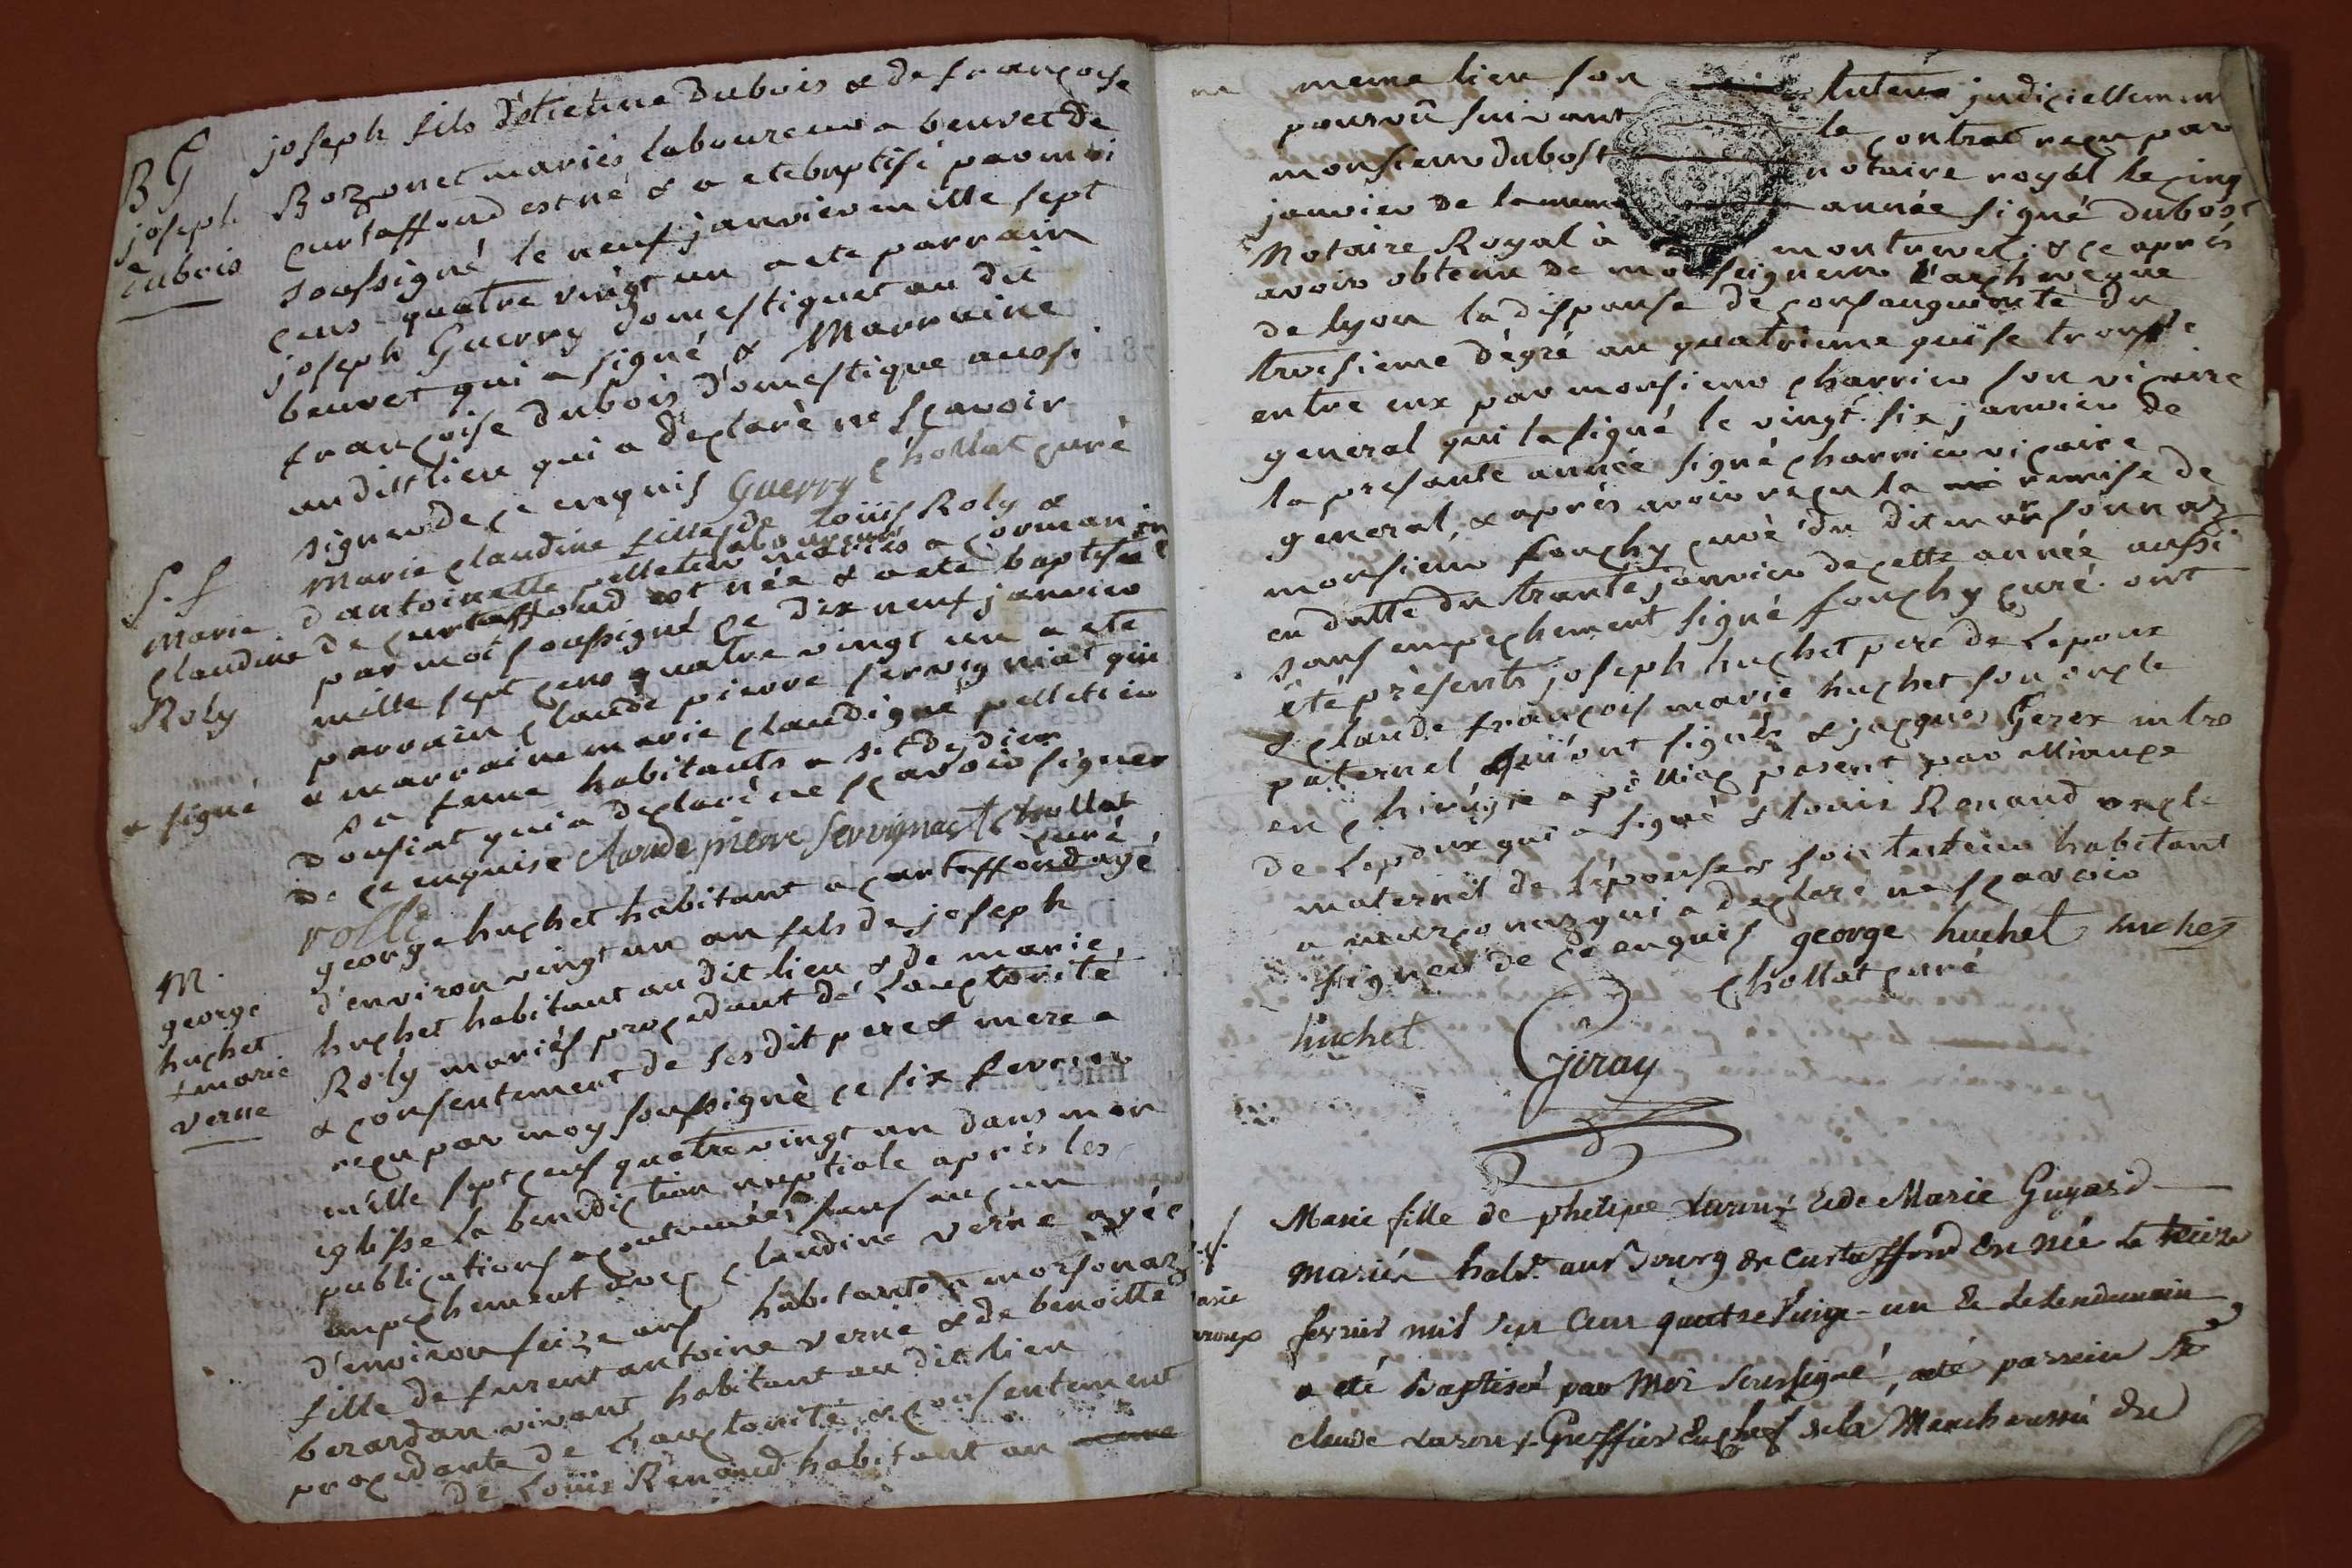 B G
joseph
dubois
joseph fils d'etienne Dubois & de françoise
Bozonet mariés laboureurs a beuvet de
curtaffond est né & a ete baptisé par moi
soussigné le neuf janvier mille sept
cens quatre vingt un a ete parrain
joseph Guerry domestiquet au dit
beuvet qui a signé & Marraine
françoise dubois domestique aussi
audit lieu qui a declaré ne scavoir
signer de ce enquis Guerry chollat curé
S. f
Marie
claudine
Roly
Marie claudine fille de loüis Roly &
d'antoinette pelletier laboureurs mariés a cormarin
de curtaffond est née & a ete baptisée
par moi soussigné ce dix neuf janvier
mille sept cens quatre vingt un a ete
parrain claude pierre servigniat qui
& signé
& marraine marie claudigne pelletier
sa feme habitants a st Desdier
d'oussiat qui a declaré ne scavoir signer
de ce enquise claude pierre Servignat chollat
curé
rolle
M.
george
huchet
& marie
verne
george huchet habitant a curtaffond agé
d'environ vingt un an fils de joseph
huchet habitant au dit lieu & de marie
Roly mariés procedant de l'auctorité
& consentement de ses dit pere & mere a
reçu par moy soussigné ce six fevrier
mille sept cens quatre vingt un dans mon
eglisse la benediction nuptiale après les
publications acoutumées sans aucun
anpechement avec claudine verne agée
d'environ seize ans habitante a morsonaz
fille de furent antoine verne & de benoitte
berardan vivant habitant au dit lieu
procedante de l'auctorité & consentement
de Loüis Renaud habitant au
meme lieu son tuteur judiciellement
pourvû suivant le contrat reçu par
monsieur dubost notaire royal le cinq
janvier de la meme année signé dubost
Notaire Royal à montrevel; & ce après
avoir obtenu de monseigneur l'archeveque
de lyon la dispanse de consanguinité du
troisieme dégré au quatrieme qui se trouve
entre eux par monsieur charrier son vicaire
general qui l'a signé le vingt six janvier de
la presante année signé charrier vicaire
general, & après avoir reçu la remise de
monsieur fouchy curé du dit marsonnaz
en datte du trante janvier de cette année aussi
sans empechement signé fouchy curé. ont
été présents joseph huchet pere de l'epoux
& claude françois marie huchet son oncle
paternel qui ont signés & jacques Gerex mtre
en chirugie a polliac parent par alliance
de l'epoux qui a signé & Louis Renaud oncle
maternel de l'épouse & son tuteur habitant
a marsonaz qui a declaré ne scavoir
signer de ce enquis george huchet huchet
huchet chollat curé
Giray
S. f.
Marie fille de philipe Laroux & de Marie Guyard
mariés habt. au Bourg de Curtaffond est née le treize
fevrier mil sept cent quatre vingt-un & le lendemain
a eté Baptisée par Moi soussigné, a eté parrein Sr
claude Laroux Greffier en chef de la Marechaussée de